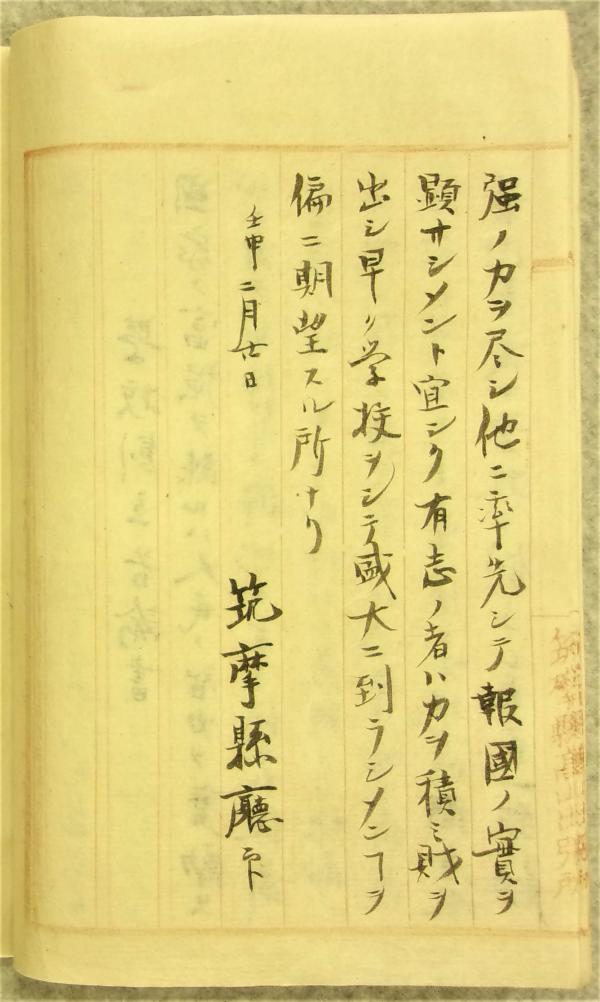 强ノ力ヲ尽シ他ニ率先シテ報國ノ實ヲ
顕サシメント宜シク有志ノ者ハ力ヲ積ミ財ヲ
出シ早ク学校ヲシテ盛大ニ到ラシメンヿヲ
偏ニ期望スル所ナリ
壬申二月廿日
筑摩縣廳